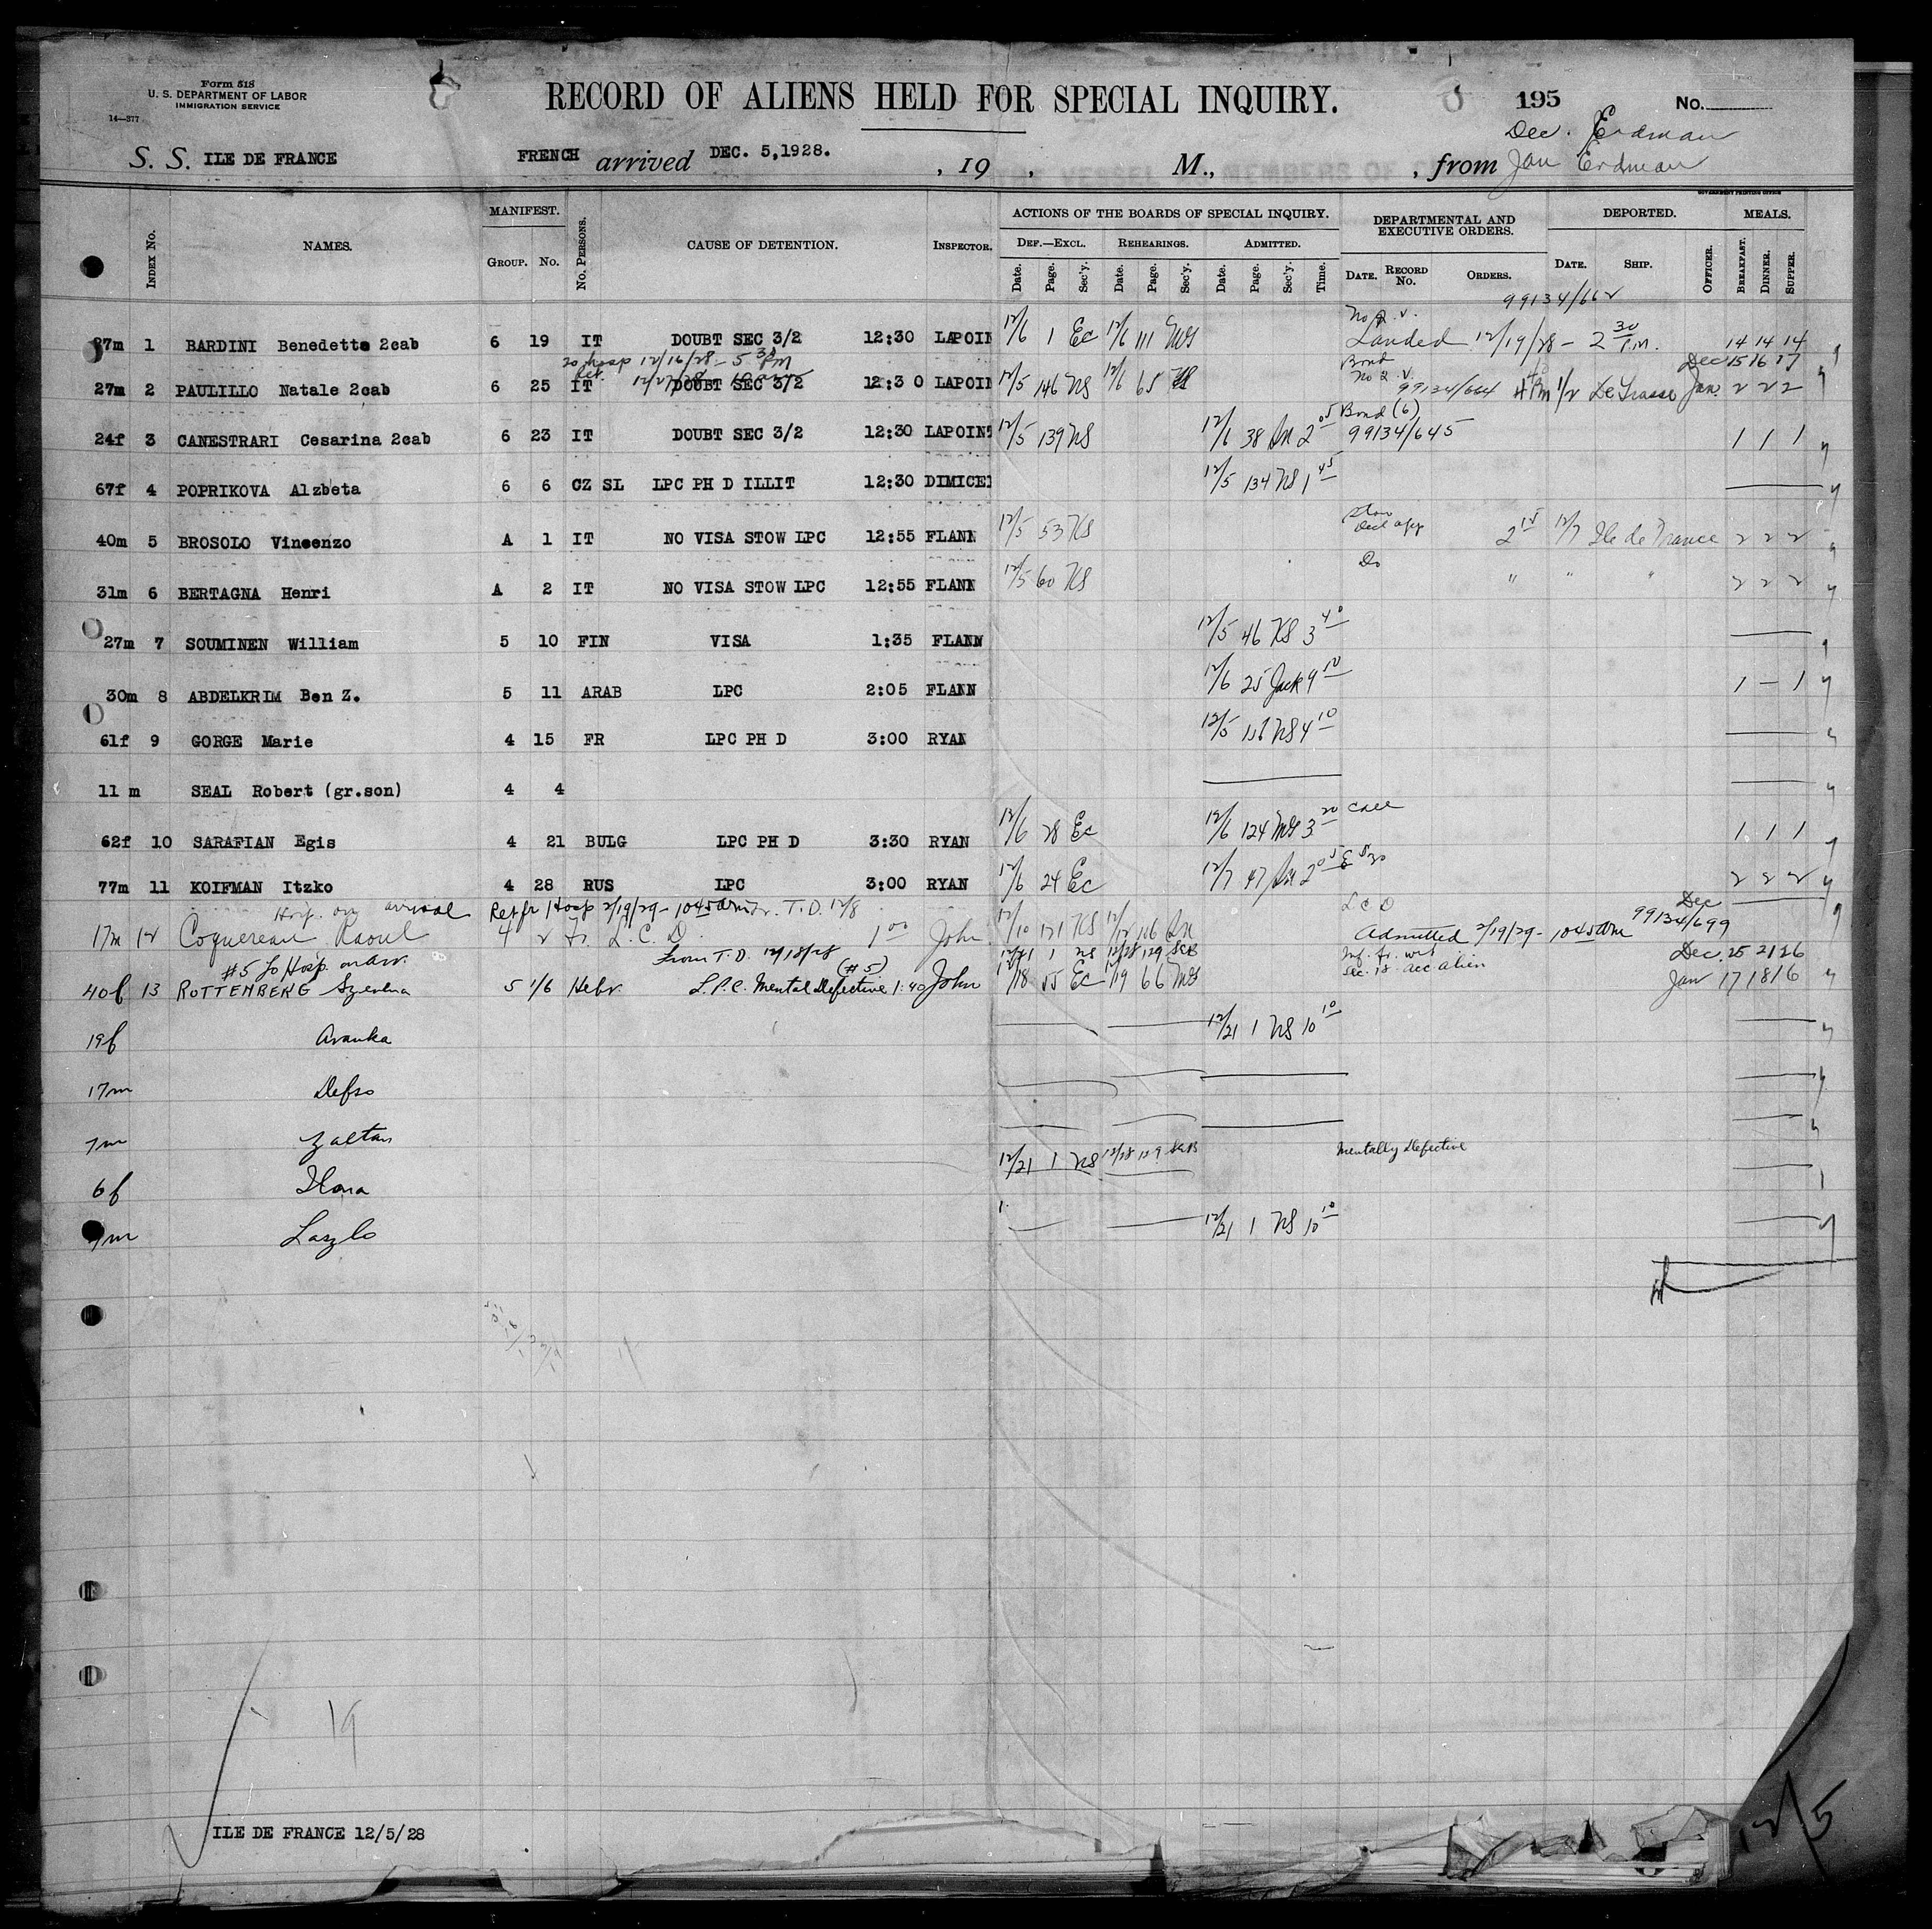 Form 518
U. S. DEPARTMENT OF LABOR
IMMIGRATION SERVICE
14—377
RECORD OF ALIENS HELD FOR SPECIAL INQUIRY.
195 No.
Dec. Erdman
S. S. ILE DE FRANCE FRENCH arrived DEC. 5,1928. , 19 , M., , from Jan Erdman
GOVERNMENT PRINTING OFFICE
INDEX No. NAMES. MANIFEST. GROUP. No. No. PERSONS. CAUSE OF DETENTION. INSPECTOR. ACTIONS OF THE BOARDS OF SPECIAL INQUIRY. DEF.—EXCL. Date. Page. Sec'y. REHEARINGS. Date. Page. Sec'y. ADMITTED. Date. Page. Sec'y. Time. DEPARTMENTAL AND EXECUTIVE ORDERS. DATE. RECORD No. ORDERS. DEPORTED. DATE. SHIP. OFFICER. MEALS. BREAKFAST. DINNER. SUPPER.
99134/662
27m 1 BARDINI Benedetto 2cab 6 19 IT DOUBT SEC 3/2 12:30 LAPOIN 12/6 1 Ec 12/6 111 Landed 12/19/28 - 2 30 P.m. 14 14 14
to hosp 12/16/28 - 5 30 PM Bond Dec 15 16 17
27m 2 PAULILLO Natale 2cab 6 25 IT DOUBT SEC 3/2 12:3 0 LAPOIN 12/5 146 NS 12/6 65 99134/664 4 PM 1/2 De Grasse Jan. 2 2 2
Bond (6)
24f 3 CANESTRARI Cesarina 2cab 6 23 IT DOUBT SEC 3/2 12:30 LAPOINT 12/5 139 NS 12/6 38 2 05 99134/645 1 1 1
67f 4 POPRIKOVA Alzbeta 6 6 CZ SL LPC PH D ILLIT 12:30 DIMICEI 12/5 134 NS 1 45
40m 5 BROSOLO Vincenzo A 1 IT NO VISA STOW LPC 12:55 FLANN 12/5 53 NS Stow 2 15 12/7 Ile de France 2 2 2
31m 6 BERTAGNA Henri A 2 IT NO VISA STOW LPC 12:55 FLANN 12/5 60 NS Do " " " 2 2 2
27m 7 SOUMINEN William 5 10 FIN VISA 1:35 FLANN 12/5 46 NS 3 40
30m 8 ABDELKRIM Ben Z. 5 11 ARAB LPC 2:05 FLANN 12/6 25 Jack 9 10 1 — 1
61f 9 GORGE Marie 4 15 FR LPC PH D 3:00 RYAN 12/5 NS 4 10
11 m SEAL Robert (gr.son) 4 4
62f 10 SARAFIAN Egis 4 21 BULG LPC PH D 3:30 RYAN 12/6 28 Ec 12/6 124 3 20 Call 1 1 1
77m 11 KOIFMAN Itzko 4 28 RUS LPC 3:00 RYAN 12/6 24 Ec 12/7 47 2 05 2 2 2
Hosp. on arrival Ret fr Hosp 2/19/29 - 10 45 am T. D. 12/8 L C D Dec
17m 12 Coquereau Raoul 4 2 Fr. L. C. D. 1 00 John 12/10 121 NS 12/12 Admitted 2/19/29 - 10 45 am 99134/699
#5 To Hosp. on arr. From T. D. 12/18/28 (#5) 12/21 1 NS 12/28 129 Dec. 25 21 26
40f 13 ROTTENBERG 5 1/6 Hebr. L. P. C. Mental Defective 1:40 John 12/18 55 Ec 1/19 66 Jan 17 18 16
19f Aranka 12/21 1 NS 10 10
17m Defso
7m Zoltan
12/21 1 NS 12/28 129 Mentally Defective
6f Ilona
m Laszlo 12/21 1 NS 10 10
19
ILE DE FRANCE 12/5/28
12/5